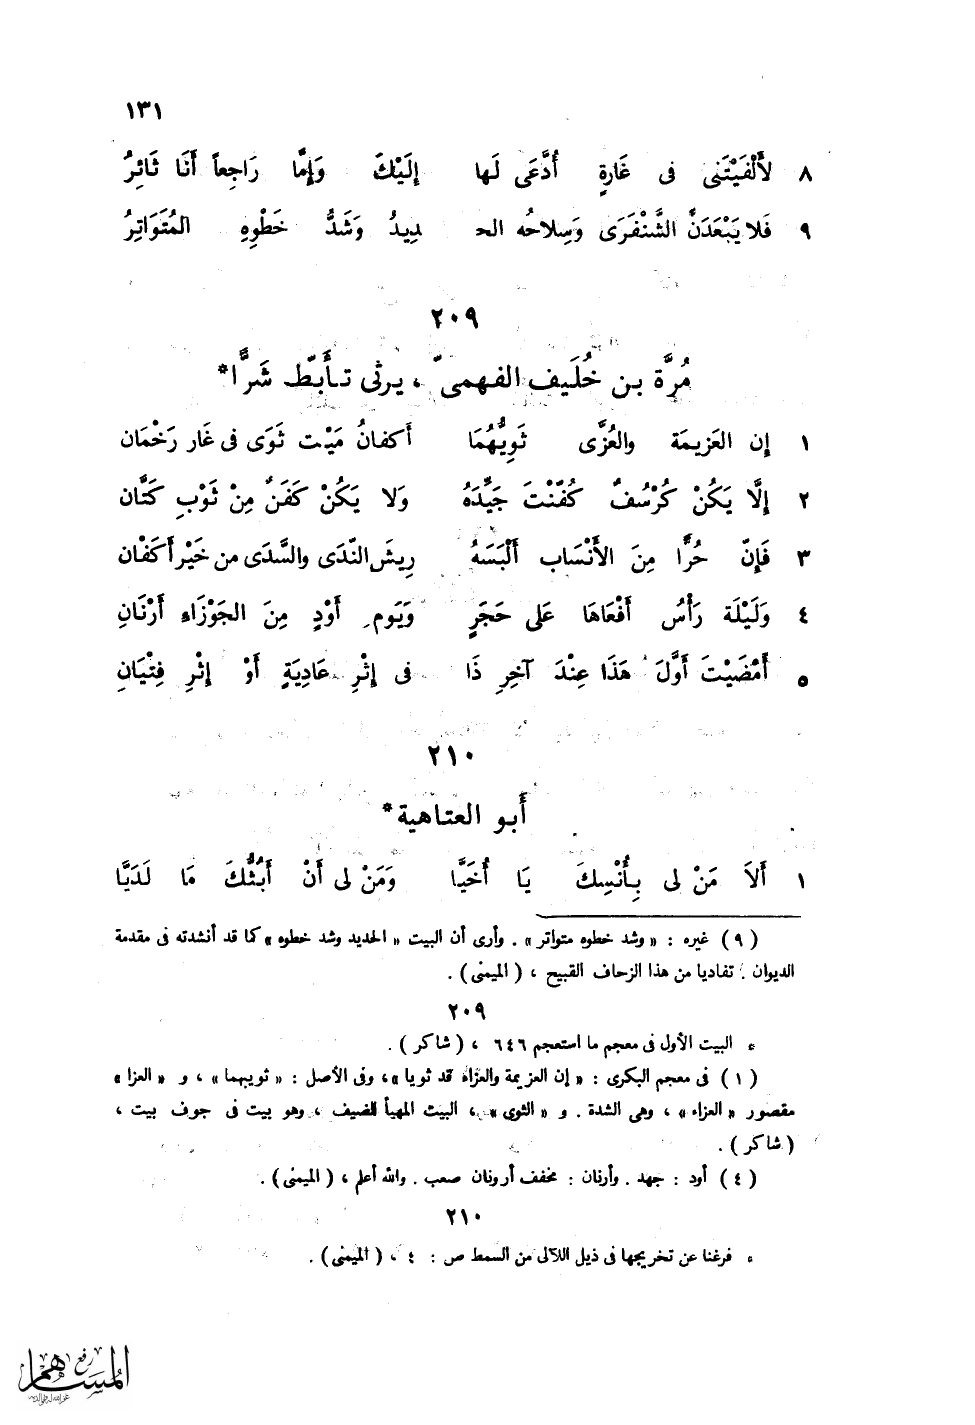 ١٣١
٨ لأَلْفَيْتَنى فى غَارةٍ أُدَّعَى لَها إِلَيْكَ وَإِمَّا رَاجِعاً أَنَا ثَائِرُ
٩ فَلا يَبْعَدَنَّ الشَّنْفَرَى وَسِلاحُه الحـ ـديِدُ وَشَدُّ خَطْوِهِ المُتَوَاتِرُ
٢٠٩
مُرَّة بن خُلَيف الفهمىّ ، يرثى تأبّط شَرًّا*
١ إن العَزيمَة والعُزَّى ثَوِيُّهُمَا أَكفانُ مَيْت ثَوَى فى غَار رَخْمَان
٢ إلَّا يَكُنْ كُرْسُفٌ كُفِّنْتَ جَيِّدَهُ وَلا يَكُنْ كَفَنٌ مِنْ ثَوْبِ كَتَّان
٣ فَإِنّ حُرًّا مِنَ الأَنْسَاب أَلْبَسَهُ رِيشَ النَّدَى والسَّدَى من خَيْر أكفَان
٤ وَلَيْلَة رَأْسُ أَفْعَاهَا عَلى حَجَرٍ وَيَومِ أَوْدٍ مِنَ الجَوْزَاءِ أَرْنَانِ
٥ أَمْضَيْتَ أَوَّلَ هَذَا عِنْدَ آخِرِ ذَا فى إثْرِ عَادِيَةٍ أَوْ إثْرِ فِتْيَانِ
٢١٠
أَبو العتاهية*
١ أَلاَ مَنْ لى بِأُنْسِكَ يَا أُخَيَّا وَمَنْ لى أَنْ أَبُثُّكَ مَا لَدَيَّا
(٩) غيره : «وشد خطوه متواتر» . وأرى أن البيت «الحديد وشد خطوه» كما قد أنشدته فى مقدمة
الديوان تفاديا من هذا الزحاف القبيح ، (الميمنى) .
٢٠٩
* البيت الأول فى معجم ما استعجم ٦٤٦ ، (شاكر) .
(١) فى معجم البكرى : «إن العزيمة والعزاء قد ثويا» ، وفى الأصل : «ثويهما» ، و «العزا»
مقصور «العزاء» ، وهى الشدة . و «الثوى» ، البيت المهيأ للضيف ، وهو بيت فى جوف بيت ،
(شاكر) .
(٤) أود : جهد . وأرنان : مخفف أرونان صعب . والله أعلم ، (الميمنى) .
٢١٠
* فرغنا عن تخريجها فى ذيل اللآلى من السمط ص : ٤ ، (الميمنى) .